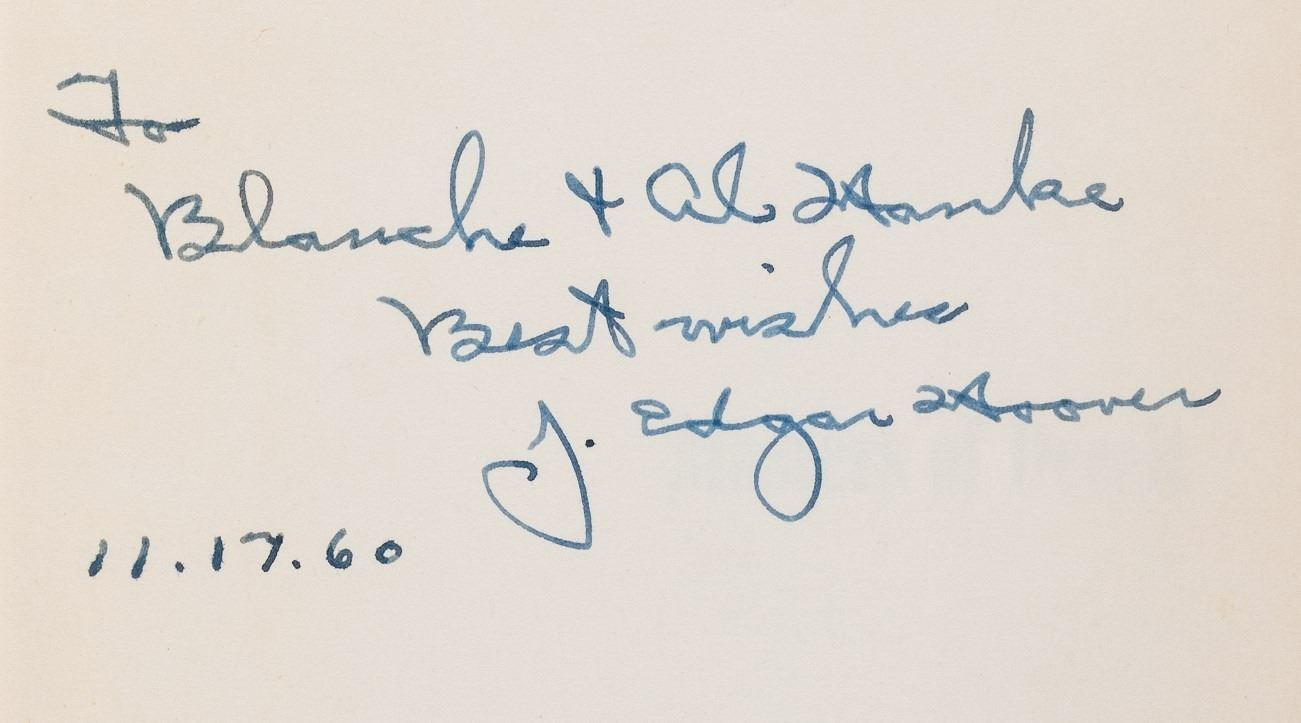 To
Blanche + Al Hanke
Best wishes
J. Edgar Hoover
11.17.60